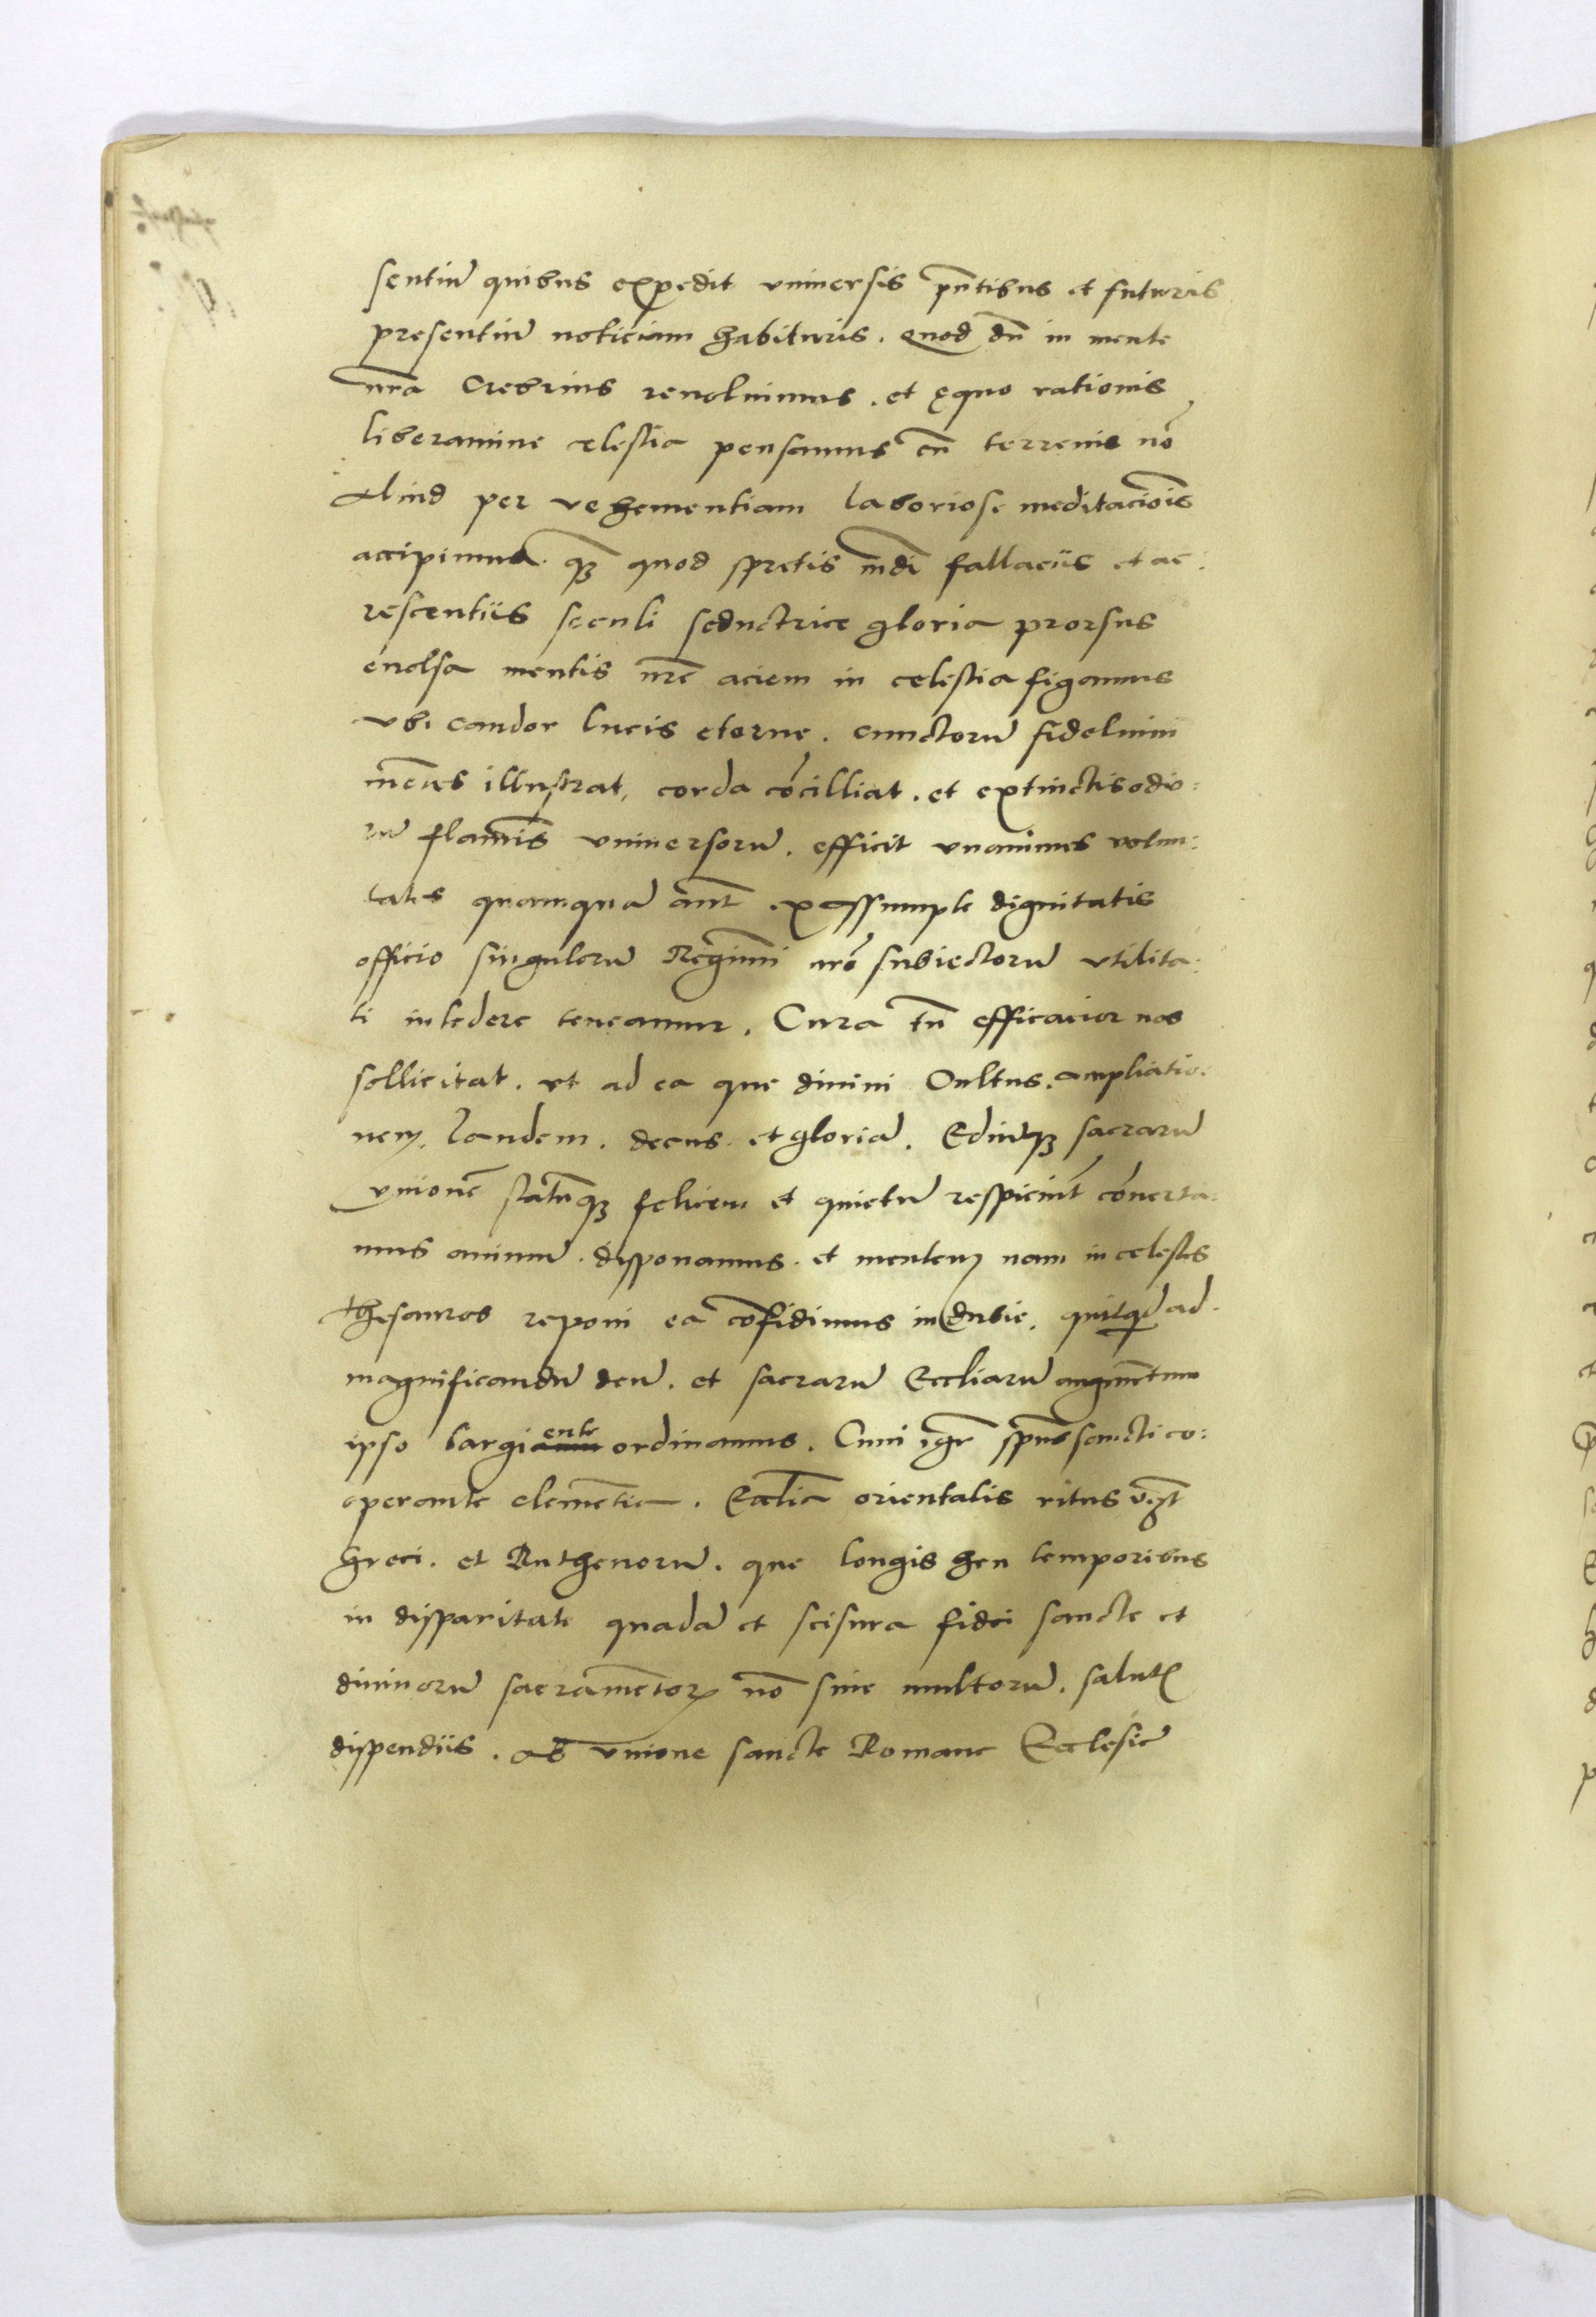 sentiũ quibus expedit vniuersis pñtibus et futuris
presentiũ noticiam habituris. Quod dũ in mente
nr̃a Crebrius reuoluimus. et ęquo rationis
liberamine celestia pensamus cũ terrenis nõ
Aliud per vehementiam laboriose meditaciõis
accipimus. qꝫ quod spretis mũdi fallaciis et ac:
rescentiis seculi seductrice gloria prorsus
euolsa mentis nr̃e aciem in celestia figamus
vbi candor lucis eterne. cunctorũ fidelium
mẽtes illustrat, corda cõcilliat. et extinctis odio:
rũ flam̃is vniuersorũ. efficit vnanimes volun:
tates quamquã aũt. ex assumpte dignitatis
officio singulorũ Regimĩ nrõ subiectorũ vtilita:
ti intedere teneamur. Cura tñ efficacior nos
sollicitat. vt ad ea que diuini Cultus. ampliatio:
nem, laudem. decus. et gloriã. Ediũqꝫ sacrarũ
vnionẽ statũqꝫ felicem et quietũ respiciũt cõuerta:
mus animũ. disponamus. et mentem nam in celestes
thesauros reponi ea cõfidimus in dubie. quitqd ad.
magnificandũ deũ. et sacrarũ Eccliarũ augmẽtum
ipso largiente ordinamus. Cum igr̃ spũs sancti co:
operante clemẽtia. Ecclĩa orientalis ritus vꝫt
Greci. et Ruthenorũ. que longis heu temporibus
in disparitate quadã et scisura fidei sancte et
diuinorũ sacramẽtorꝝ nõ sine multorũ. salutꝭ
dispendiis. ab vnione sancte Romane Ecclesie